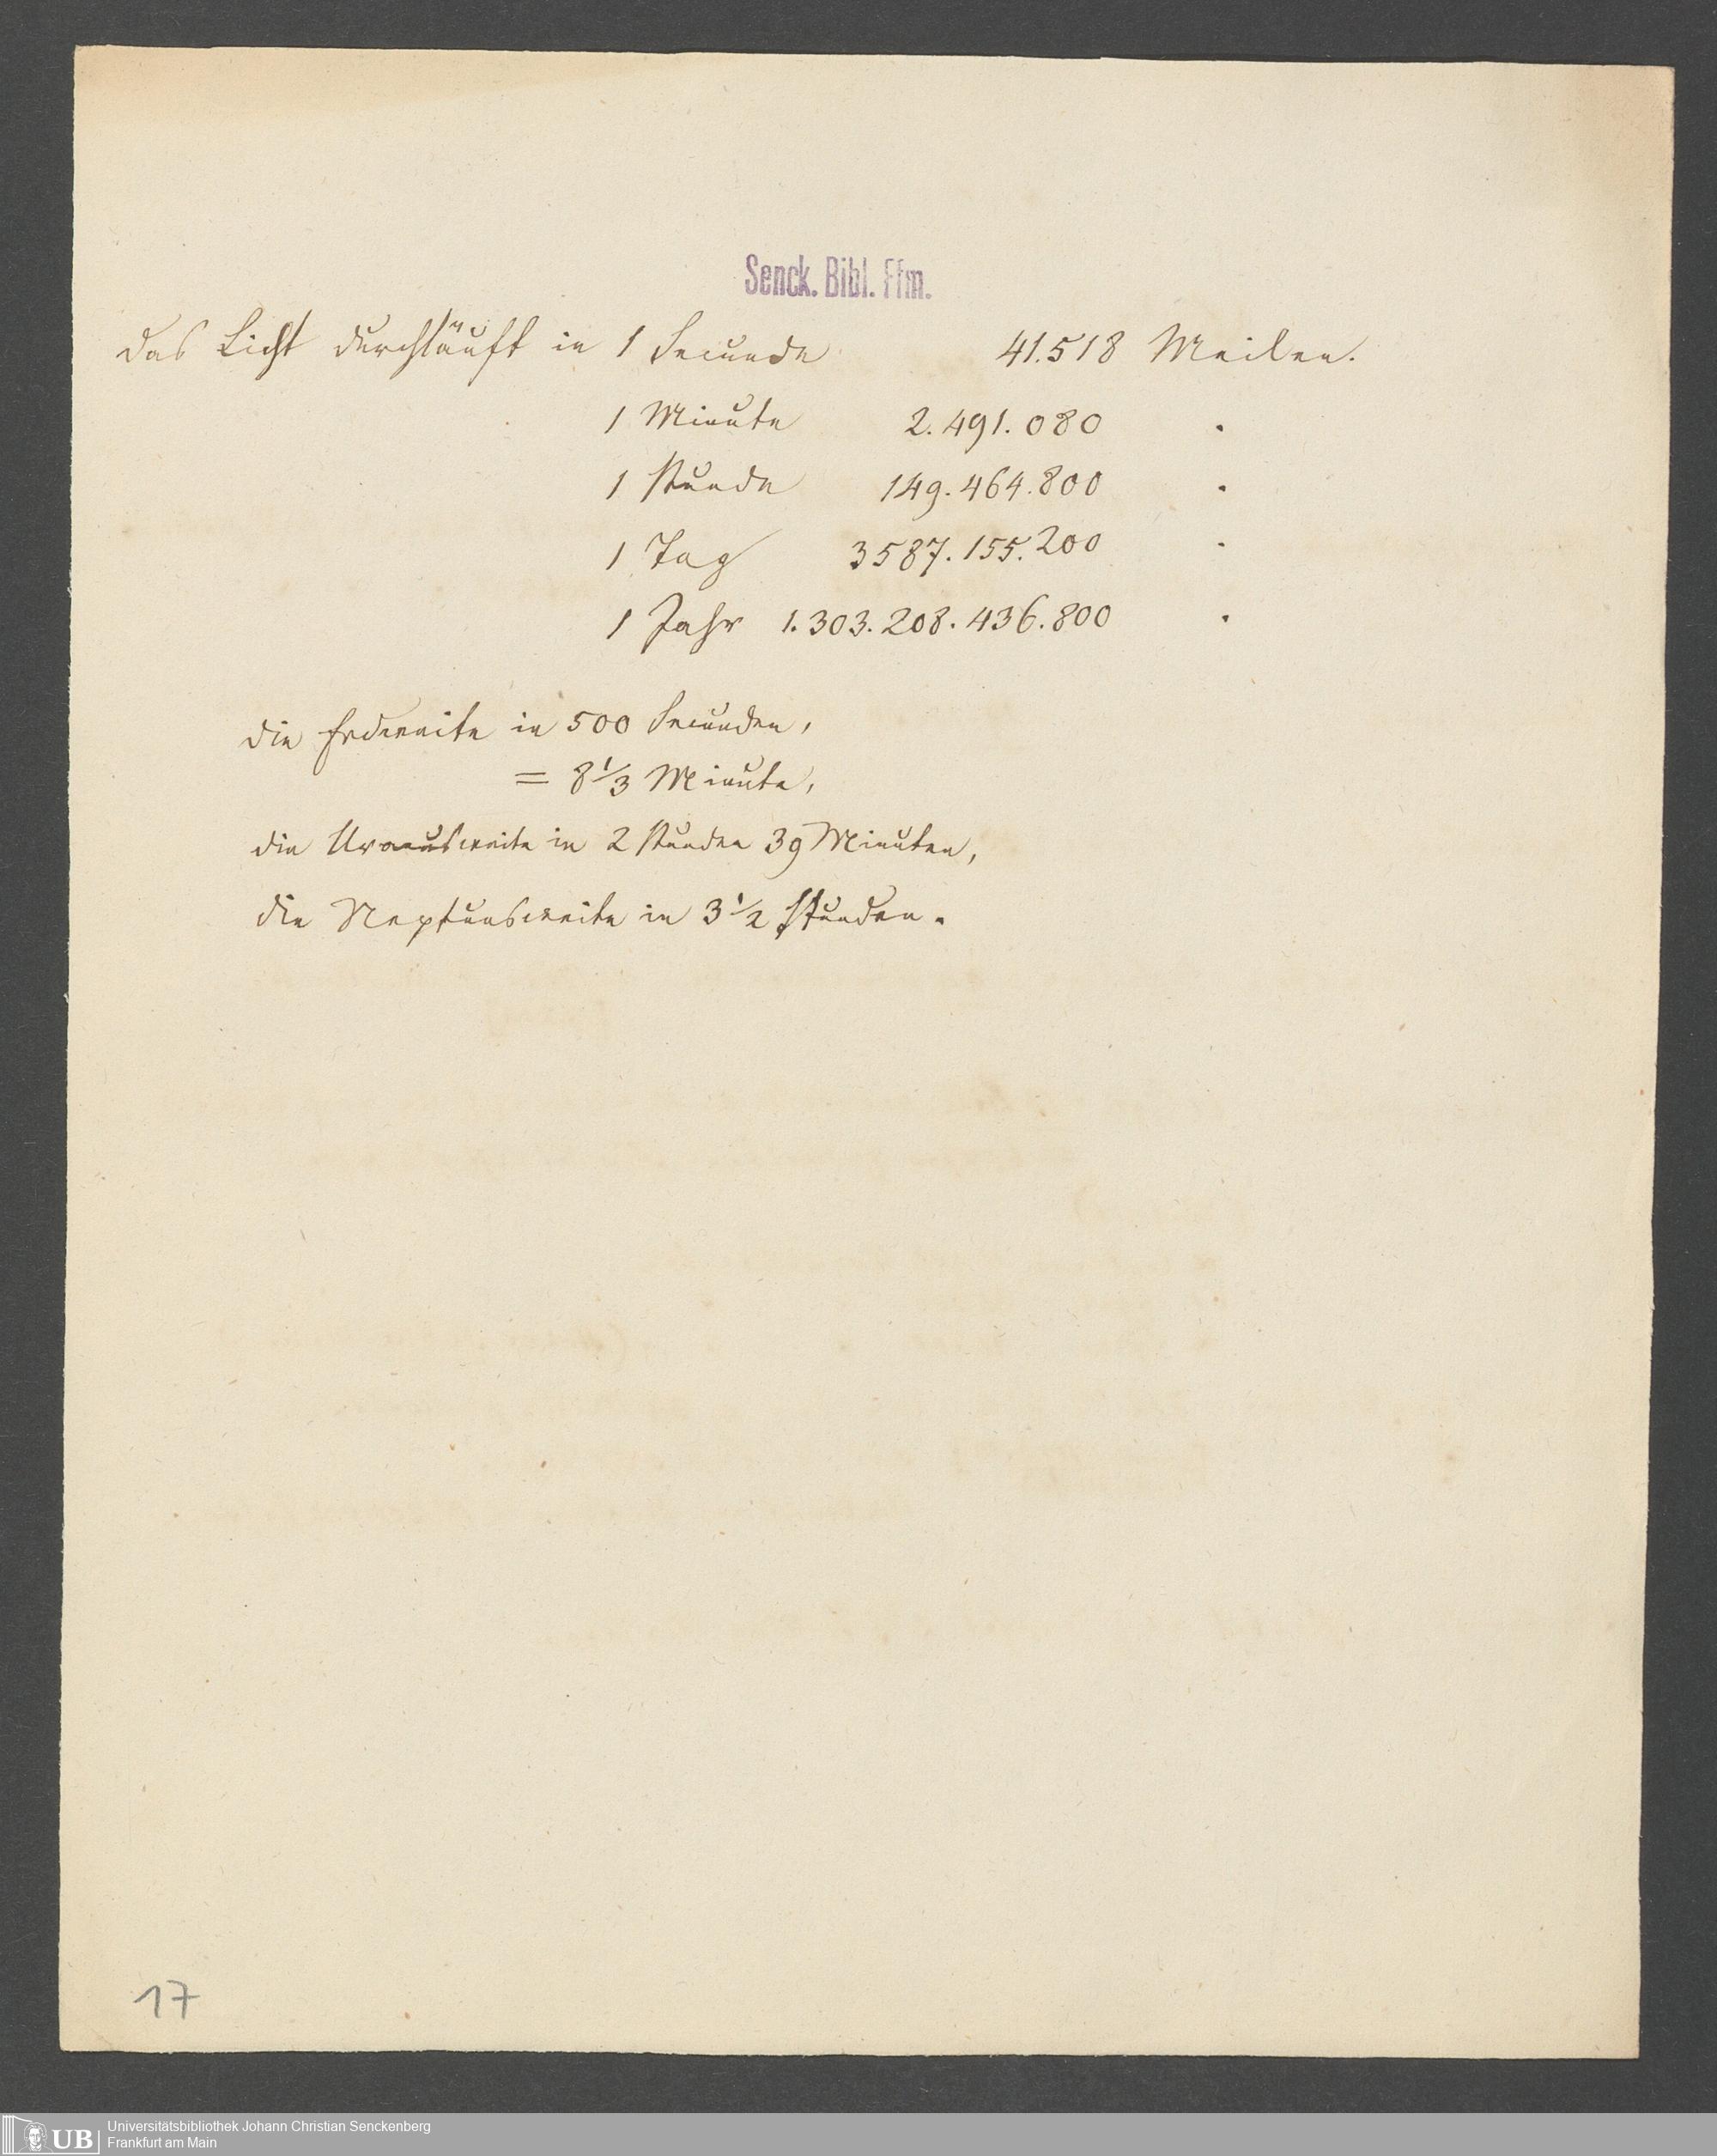 Senck. Bibl. Ffm.
das Licht durchläuft in 1 Secunde 41.518 Meilen.
1 Minute 2.491.080 "
1 Stunde 149.464.800 "
1 Tag 3587.155.200 "
1 Jahr 1.303.208.436.800 "
die Erdweite in 500 Secunden,
= 8 1/3 Minute,
die Uranusweite in 2 Stunden 39 Minuten,
die Neptunsweite in 3 1/2 Stunden.
17
UB Universitätsbibliothek Johann Christian Senckenberg
Frankfurt am Main